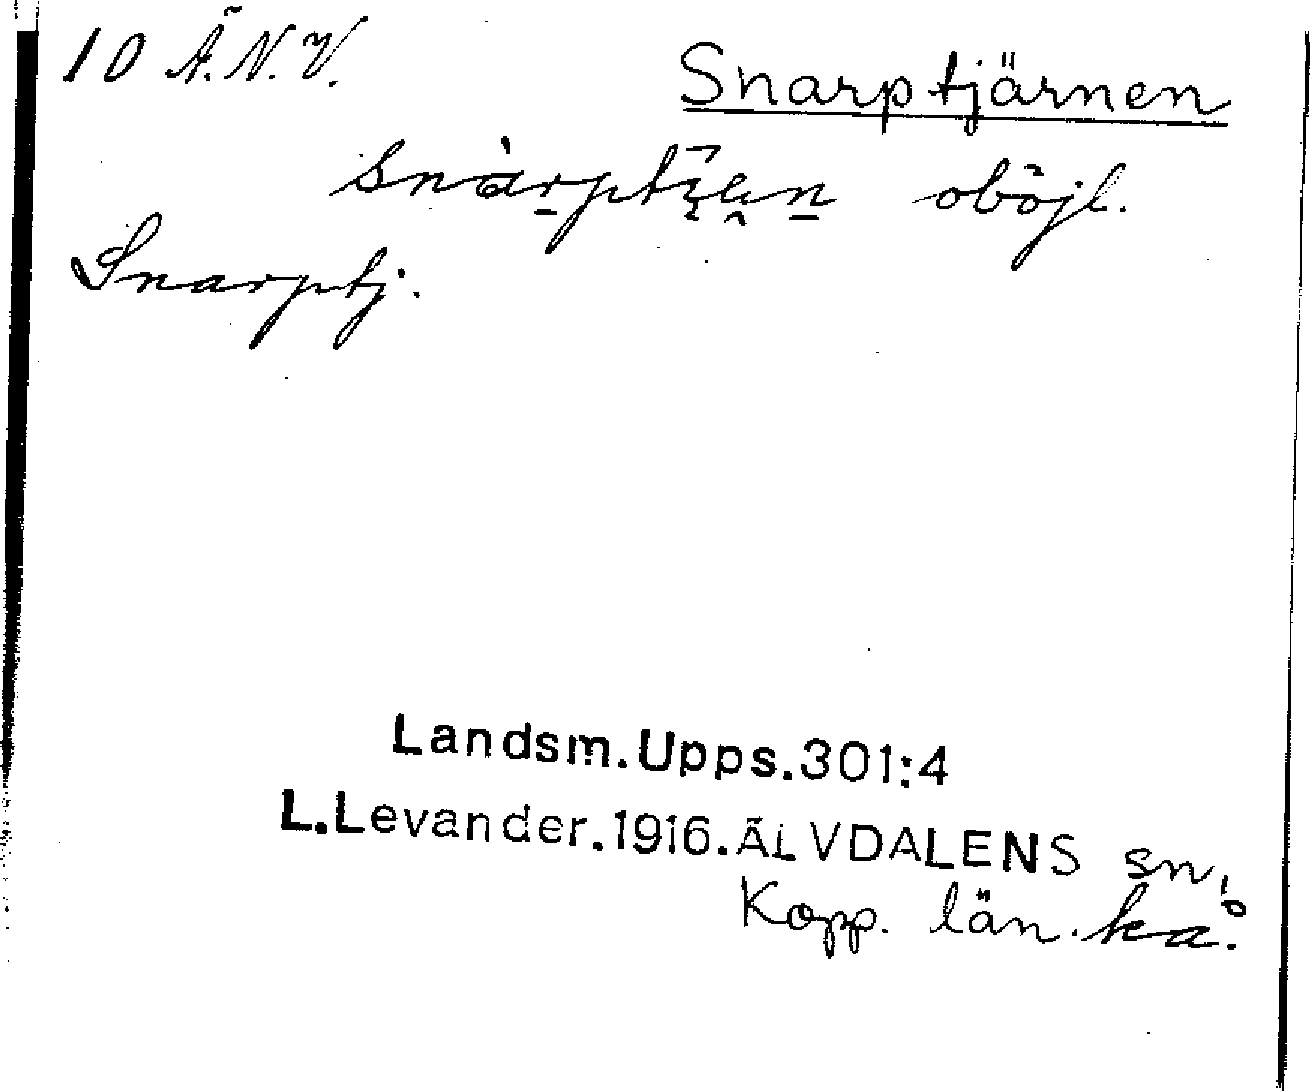 10 Ä.N.V.
Snarptjärnen
oböjl.
Snarptj.
Landsm.Upps.301:4
L.Levander.1916.ÄLVDALENS sn.
Kopp. län.